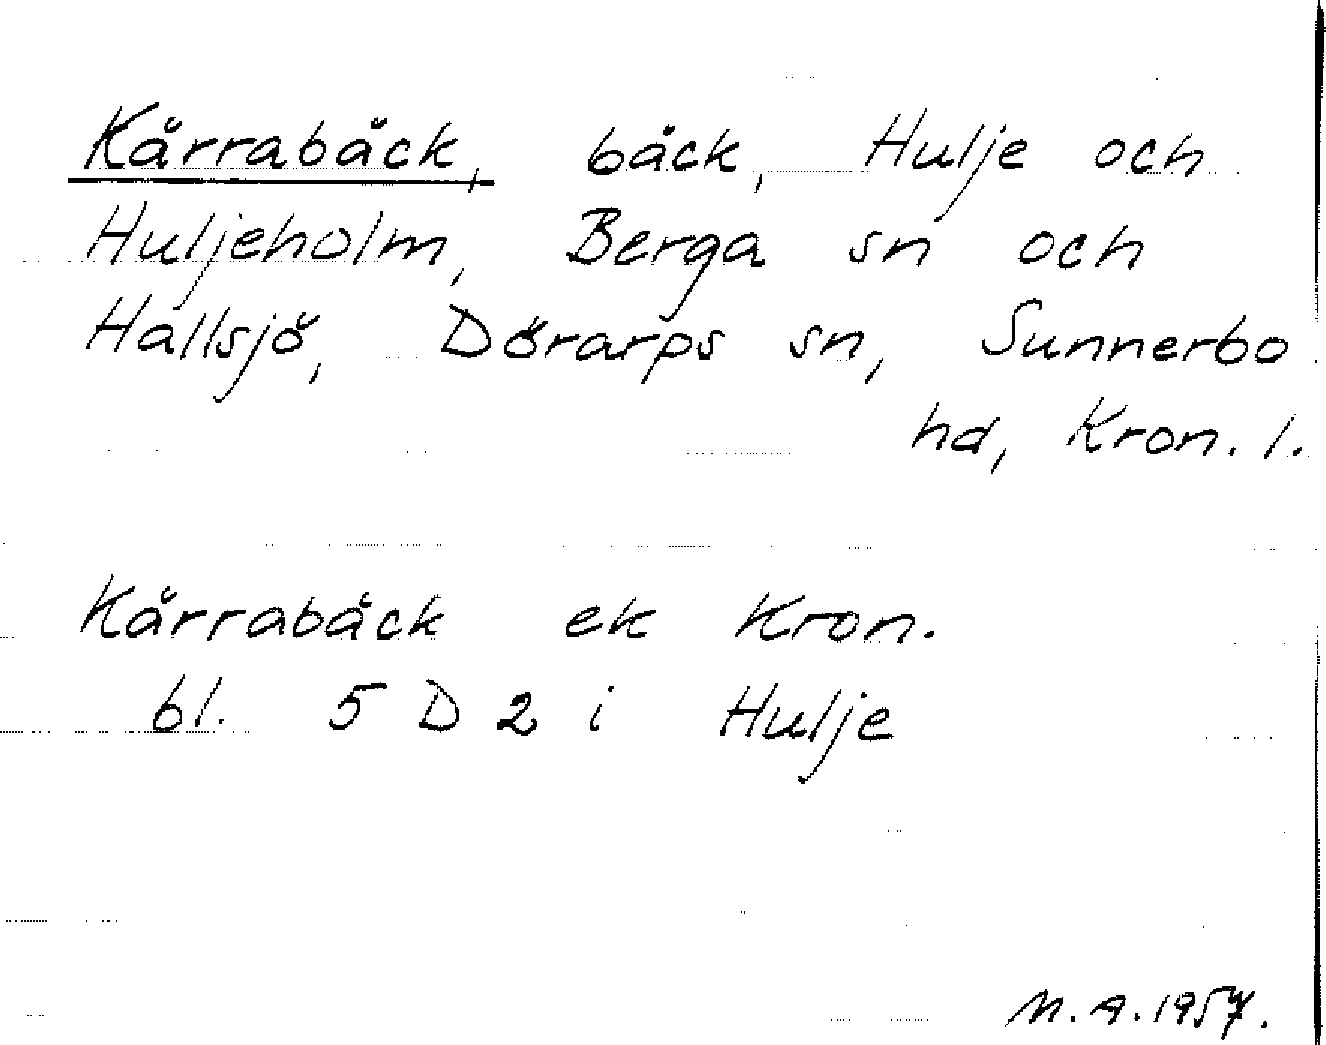 Kärrabäck, bäck, Hulje och
Huljeholm, Berga sn och
Hallsjö, Dörarps sn, Sunnerbo
hd, Kron. l.
Kärrabäck ek Kron.
bl. 5 D 2 i Hulje
M. A. 1957.